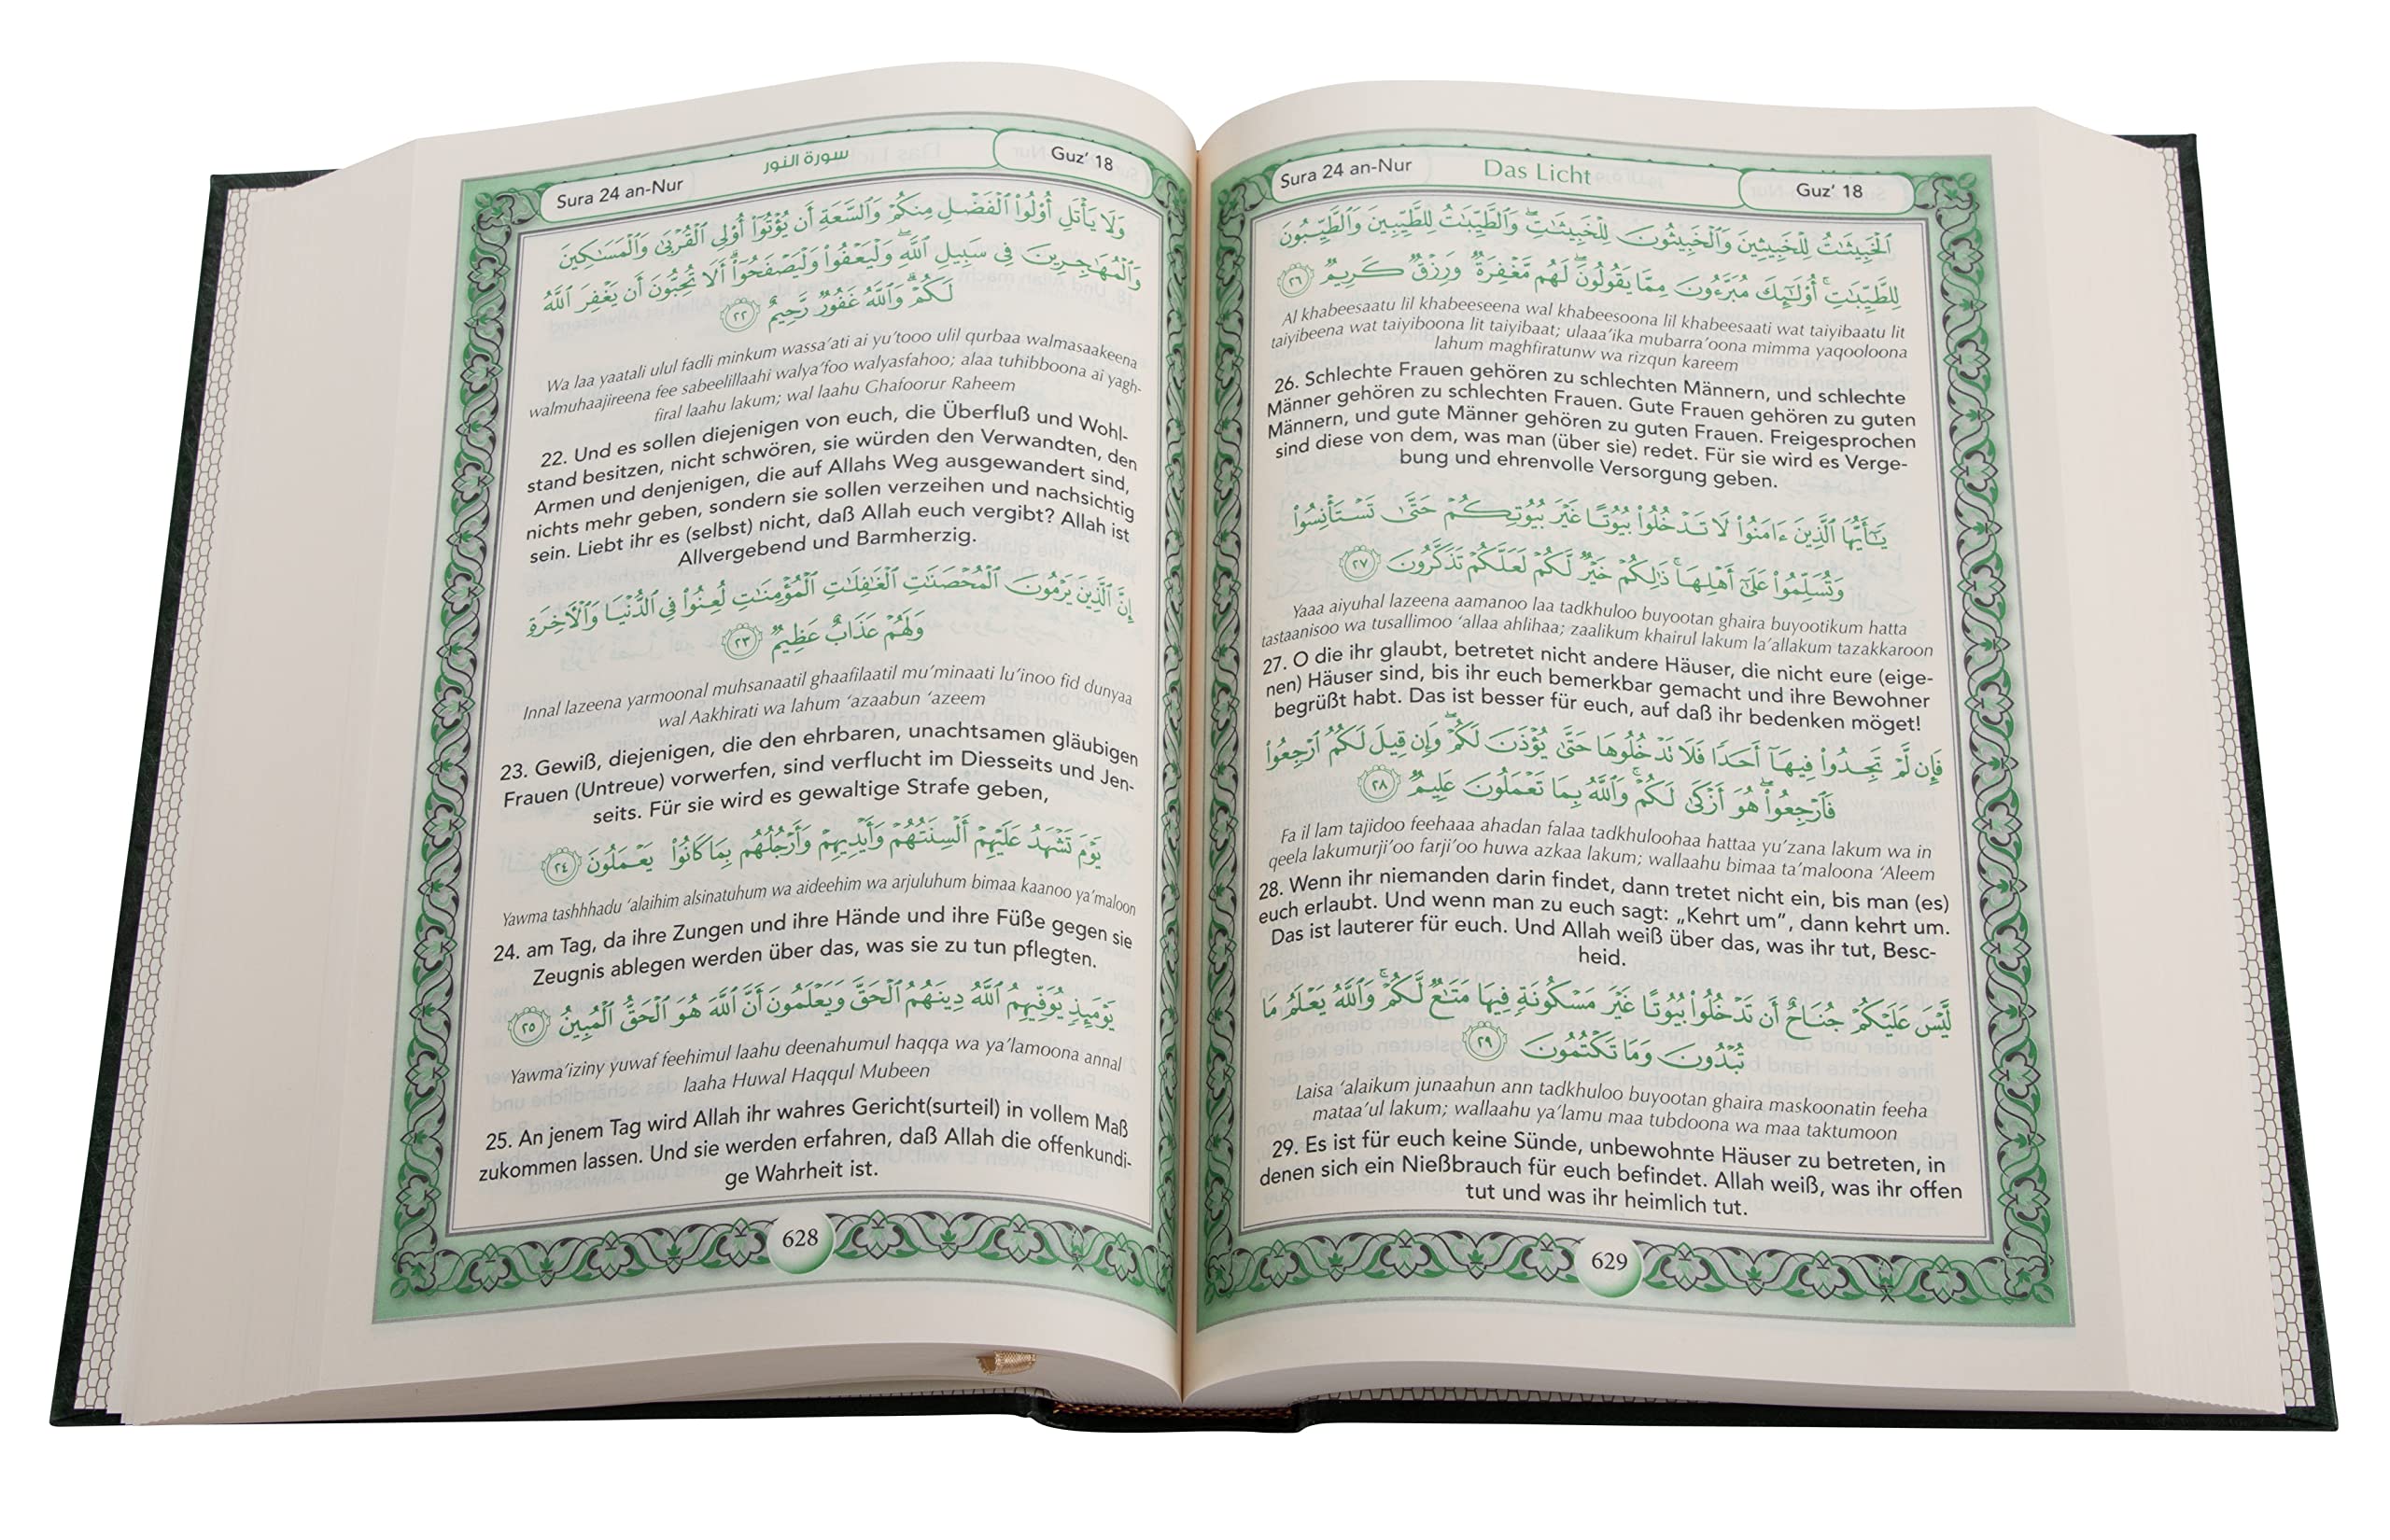 Sura 24 an-Nur
سورة النور
Guz’ 18
وَلَا يَأْتَلِ أُو۟لُوا۟ ٱلْفَضْلِ مِنكُمْ وَٱلسَّعَةِ أَن يُؤْتُوٓا۟ أُو۟لِى ٱلْقُرْبَىٰ وَٱلْمَسَٰكِينَ
وَٱلْمُهَٰجِرِينَ فِى سَبِيلِ ٱللَّهِ ۖ وَلْيَعْفُوا۟ وَلْيَصْفَحُوٓا۟ ۗ أَلَا تُحِبُّونَ أَن يَغْفِرَ ٱللَّهُ
لَكُمْ ۗ وَٱللَّهُ غَفُورٌ رَّحِيمٌ ٢٢
Wa laa yaatali ulul fadli minkum wassa’ati ai yu’tooo ulil qurbaa walmasaakeena
walmuhaajireena fee sabeelillaahi walya’foo walyasfahoo; alaa tuhibboona ai yagh-
firal laahu lakum; wal laahu Ghafoorur Raheem
22. Und es sollen diejenigen von euch, die Überfluß und Wohl-
stand besitzen, nicht schwören, sie würden den Verwandten, den
Armen und denjenigen, die auf Allahs Weg ausgewandert sind,
nichts mehr geben, sondern sie sollen verzeihen und nachsichtig
sein. Liebt ihr es (selbst) nicht, daß Allah euch vergibt? Allah ist
Allvergebend und Barmherzig.
إِنَّ ٱلَّذِينَ يَرْمُونَ ٱلْمُحْصَنَٰتِ ٱلْغَٰفِلَٰتِ ٱلْمُؤْمِنَٰتِ لُعِنُوا۟ فِى ٱلدُّنْيَا وَٱلْءَاخِرَةِ
وَلَهُمْ عَذَابٌ عَظِيمٌ ٢٣
Innal lazeena yarmoonal muhsanaatil ghaafilaatil mu’minaati lu’inoo fid dunyaa
wal Aakhirati wa lahum ‘azaabun ‘azeem
23. Gewiß, diejenigen, die den ehrbaren, unachtsamen gläubigen
Frauen (Untreue) vorwerfen, sind verflucht im Diesseits und Jen-
seits. Für sie wird es gewaltige Strafe geben,
يَوْمَ تَشْهَدُ عَلَيْهِمْ أَلْسِنَتُهُمْ وَأَيْدِيهِمْ وَأَرْجُلُهُم بِمَا كَانُوا۟ يَعْمَلُونَ ٢٤
Yawma tashhhadu ‘alaihim alsinatuhum wa aideehim wa arjuluhum bimaa kaanoo ya’maloon
24. am Tag, da ihre Zungen und ihre Hände und ihre Füße gegen sie
Zeugnis ablegen werden über das, was sie zu tun pflegten.
يَوْمَئِذٍ يُوَفِّيهِمُ ٱللَّهُ دِينَهُمُ ٱلْحَقَّ وَيَعْلَمُونَ أَنَّ ٱللَّهَ هُوَ ٱلْحَقُّ ٱلْمُبِينُ ٢٥
Yawma’iziny yuwaf feehimul laahu deenahumul haqqa wa ya’lamoona annal
laaha Huwal Haqqul Mubeen
25. An jenem Tag wird Allah ihr wahres Gericht(surteil) in vollem Maß
zukommen lassen. Und sie werden erfahren, daß Allah die offenkundi-
ge Wahrheit ist.
628
Sura 24 an-Nur
Das Licht
Guz’ 18
ٱلْخَبِيثَٰتُ لِلْخَبِيثِينَ وَٱلْخَبِيثُونَ لِلْخَبِيثَٰتِ ۖ وَٱلطَّيِّبَٰتُ لِلطَّيِّبِينَ وَٱلطَّيِّبُونَ
لِلطَّيِّبَٰتِ ۚ أُو۟لَٰٓئِكَ مُبَرَّءُونَ مِمَّا يَقُولُونَ ۖ لَهُم مَّغْفِرَةٌ وَرِزْقٌ كَرِيمٌ ٢٦
Al khabeesaatu lil khabeeseena wal khabeesoona lil khabeesaati wat taiyibaatu lit
taiyibeena wat taiyiboona lit taiyibaat; ulaaa’ika mubarra’oona mimma yaqooloona
lahum maghfiratunw wa rizqun kareem
26. Schlechte Frauen gehören zu schlechten Männern, und schlechte
Männer gehören zu schlechten Frauen. Gute Frauen gehören zu guten
Männern, und gute Männer gehören zu guten Frauen. Freigesprochen
sind diese von dem, was man (über sie) redet. Für sie wird es Verge-
bung und ehrenvolle Versorgung geben.
يَٰٓأَيُّهَا ٱلَّذِينَ ءَامَنُوا۟ لَا تَدْخُلُوا۟ بُيُوتًا غَيْرَ بُيُوتِكُمْ حَتَّىٰ تَسْتَأْنِسُوا۟
وَتُسَلِّمُوا۟ عَلَىٰٓ أَهْلِهَا ۚ ذَٰلِكُمْ خَيْرٌ لَّكُمْ لَعَلَّكُمْ تَذَكَّرُونَ ٢٧
Yaaa aiyuhal lazeena aamanoo laa tadkhuloo buyootan ghaira buyootikum hatta
tastaanisoo wa tusallimoo ‘allaa ahlihaa; zaalikum khairul lakum la’allakum tazakkaroon
27. O die ihr glaubt, betretet nicht andere Häuser, die nicht eure (eige-
nen) Häuser sind, bis ihr euch bemerkbar gemacht und ihre Bewohner
begrüßt habt. Das ist besser für euch, auf daß ihr bedenken möget!
فَإِن لَّمْ تَجِدُوا۟ فِيهَآ أَحَدًا فَلَا تَدْخُلُوهَا حَتَّىٰ يُؤْذَنَ لَكُمْ ۖ وَإِن قِيلَ لَكُمُ ٱرْجِعُوا۟
فَٱرْجِعُوا۟ ۖ هُوَ أَزْكَىٰ لَكُمْ ۚ وَٱللَّهُ بِمَا تَعْمَلُونَ عَلِيمٌ ٢٨
Fa il lam tajidoo feehaaa ahadan falaa tadkhuloohaa hattaa yu’zana lakum wa in
qeela lakumurji’oo farji’oo huwa azkaa lakum; wallaahu bimaa ta’maloona ‘Aleem
28. Wenn ihr niemanden darin findet, dann tretet nicht ein, bis man (es)
euch erlaubt. Und wenn man zu euch sagt: „Kehrt um”, dann kehrt um.
Das ist lauterer für euch. Und Allah weiß über das, was ihr tut, Besc-
heid.
لَّيْسَ عَلَيْكُمْ جُنَاحٌ أَن تَدْخُلُوا۟ بُيُوتًا غَيْرَ مَسْكُونَةٍ فِيهَا مَتَٰعٌ لَّكُمْ ۚ وَٱللَّهُ يَعْلَمُ مَا
تُبْدُونَ وَمَا تَكْتُمُونَ ٢٩
Laisa ‘alaikum junaahun ann tadkhuloo buyootan ghaira maskoonatin feeha
mataa’ul lakum; wallaahu ya’lamu maa tubdoona wa maa taktumoon
29. Es ist für euch keine Sünde, unbewohnte Häuser zu betreten, in
denen sich ein Nießbrauch für euch befindet. Allah weiß, was ihr offen
tut und was ihr heimlich tut.
629